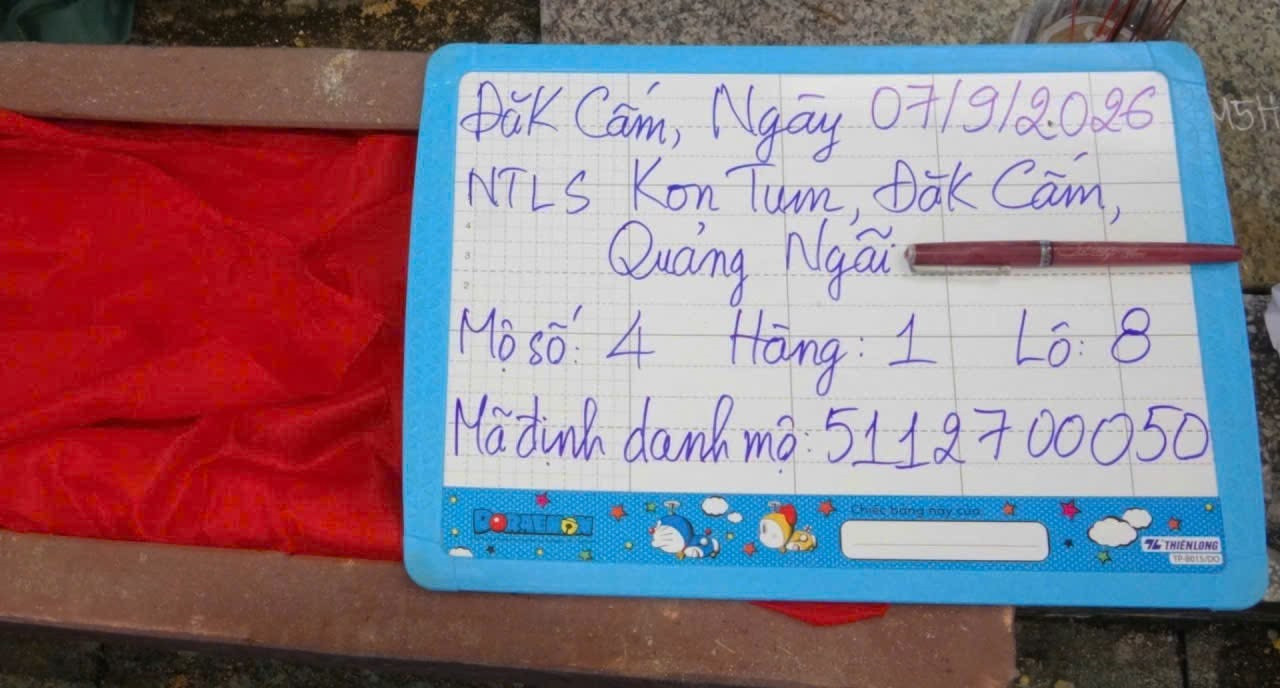 Đăk Cấm, Ngày 07/9/2026
NTLS Kon Tum, Đăk Cấm,
Quảng Ngãi
Mộ số: 4 Hàng: 1 Lô: 8
Mã định danh mộ: 5112700050
DORAEMON
Chiếc bảng này của
THIÊN LONG
TP-B015/DO
4
3
2